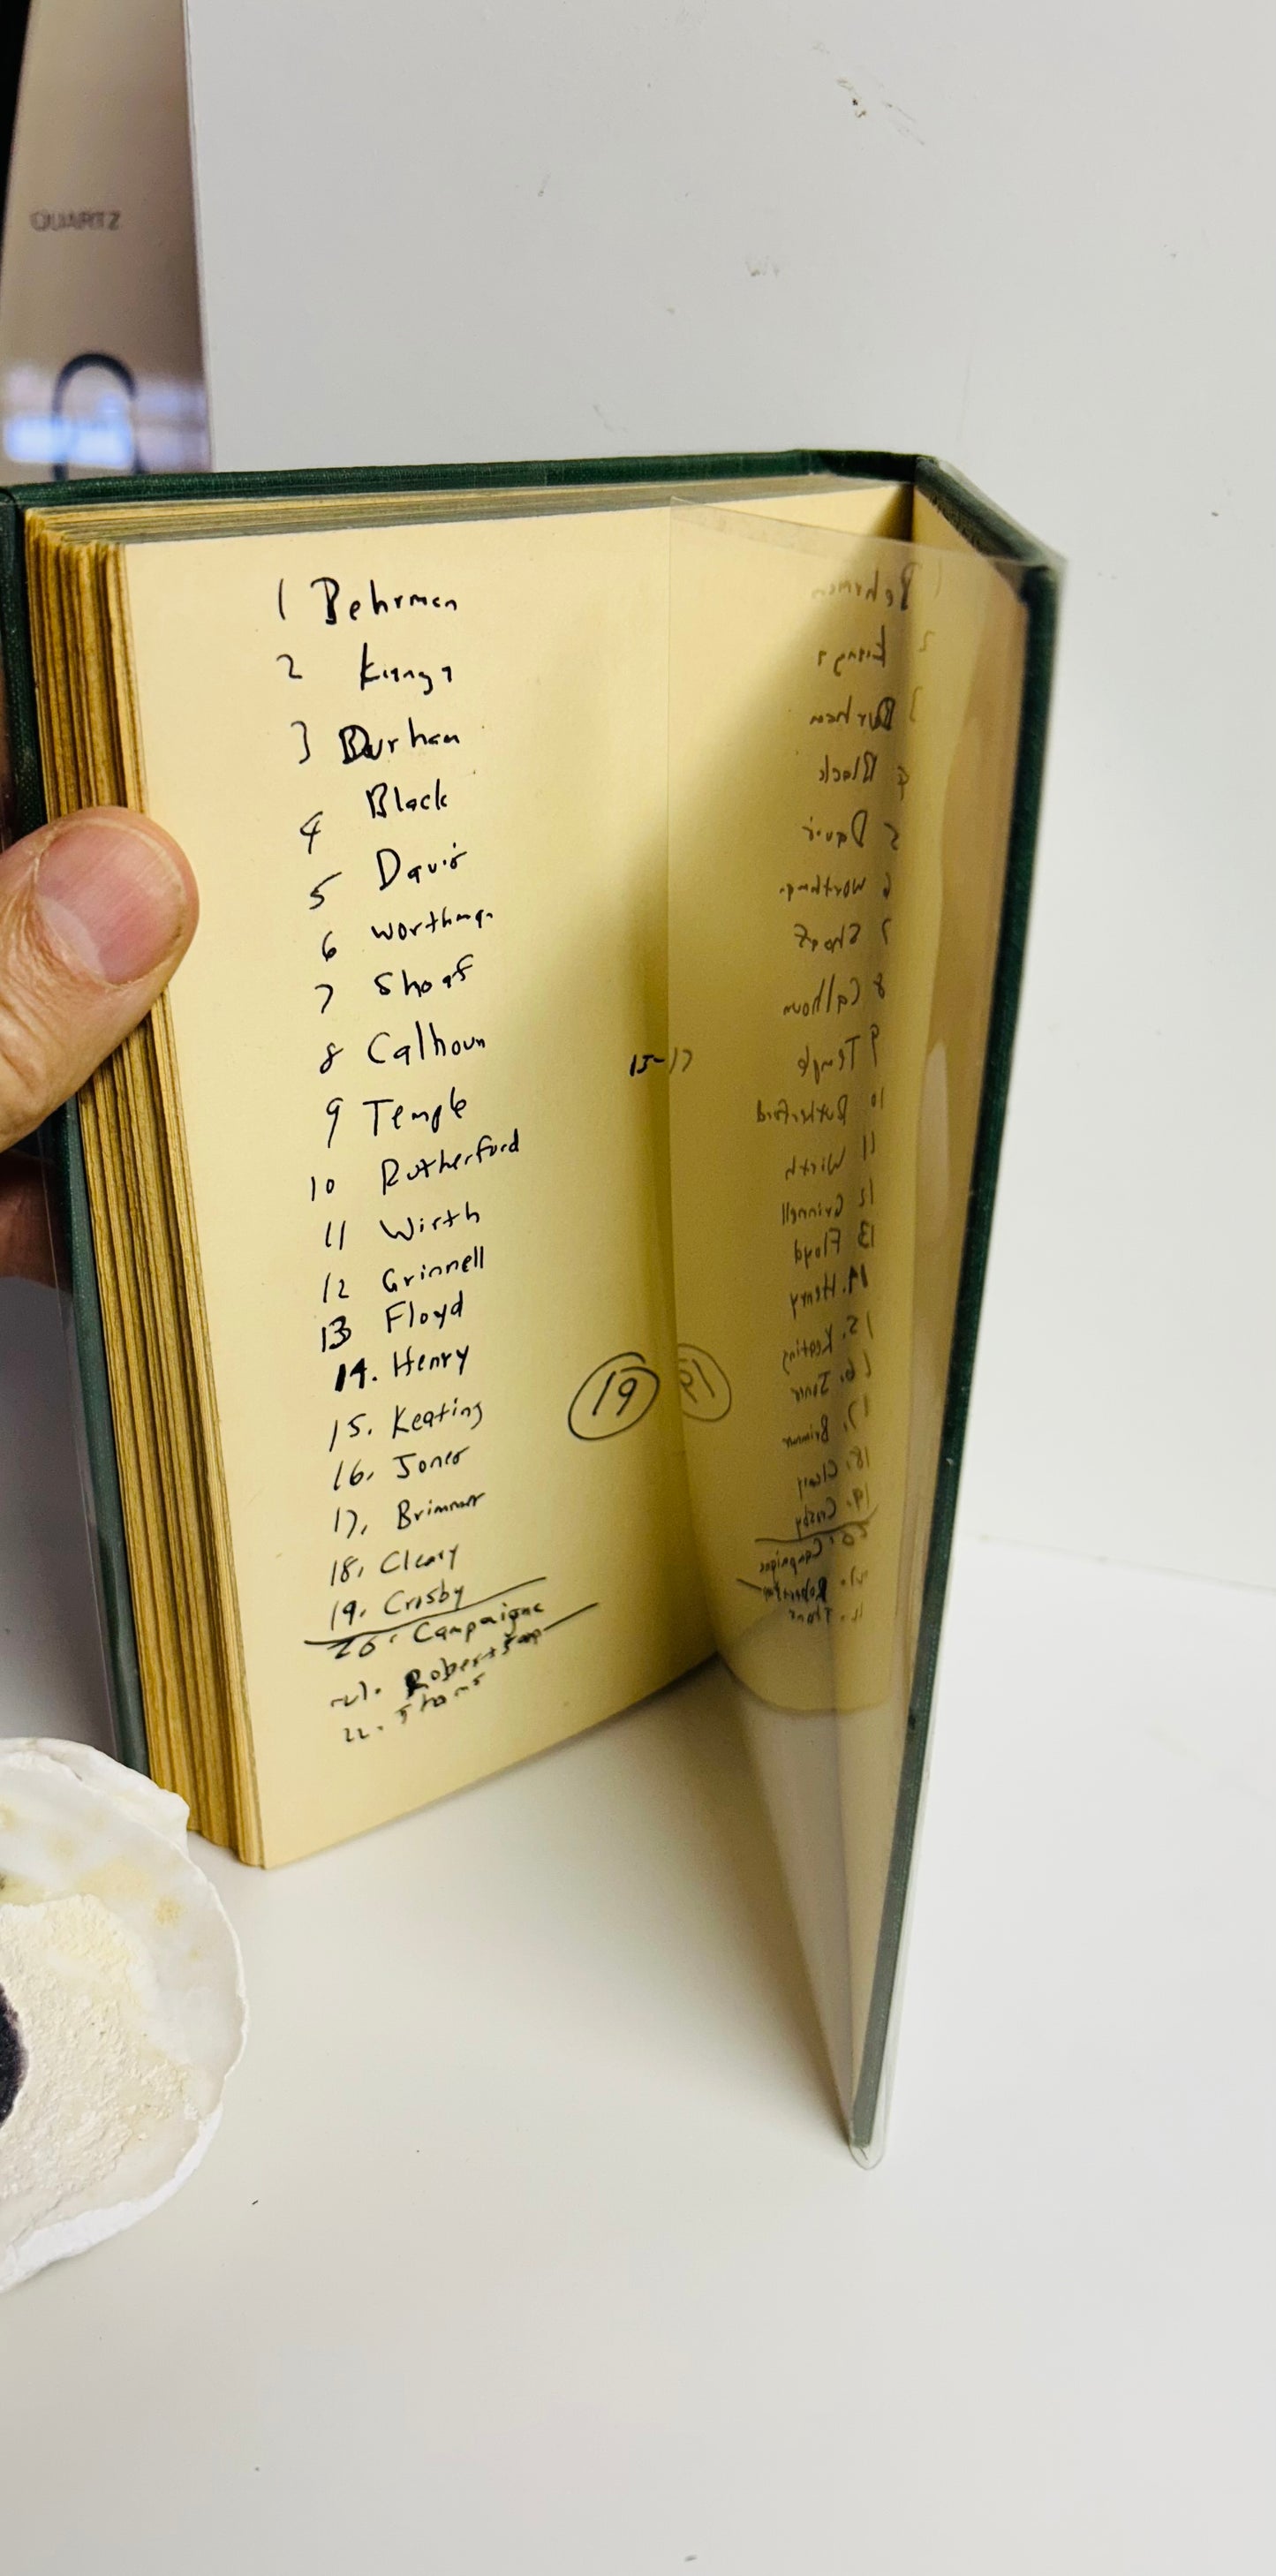 QUARTZ
1 Behrman
2
3 Durham
4 Black
5 Davis
6 Worthman
7 Shoaf
8 Calhoun
15-17
9 Temple
10 Rutherford
11 Wirth
12 Grinnell
13 Floyd
14. Henry
19
15. Keating
16. Jones
17. Brimmer
18. Cleary
19. Crosby
20. Campaigne
21. Robertson
22.